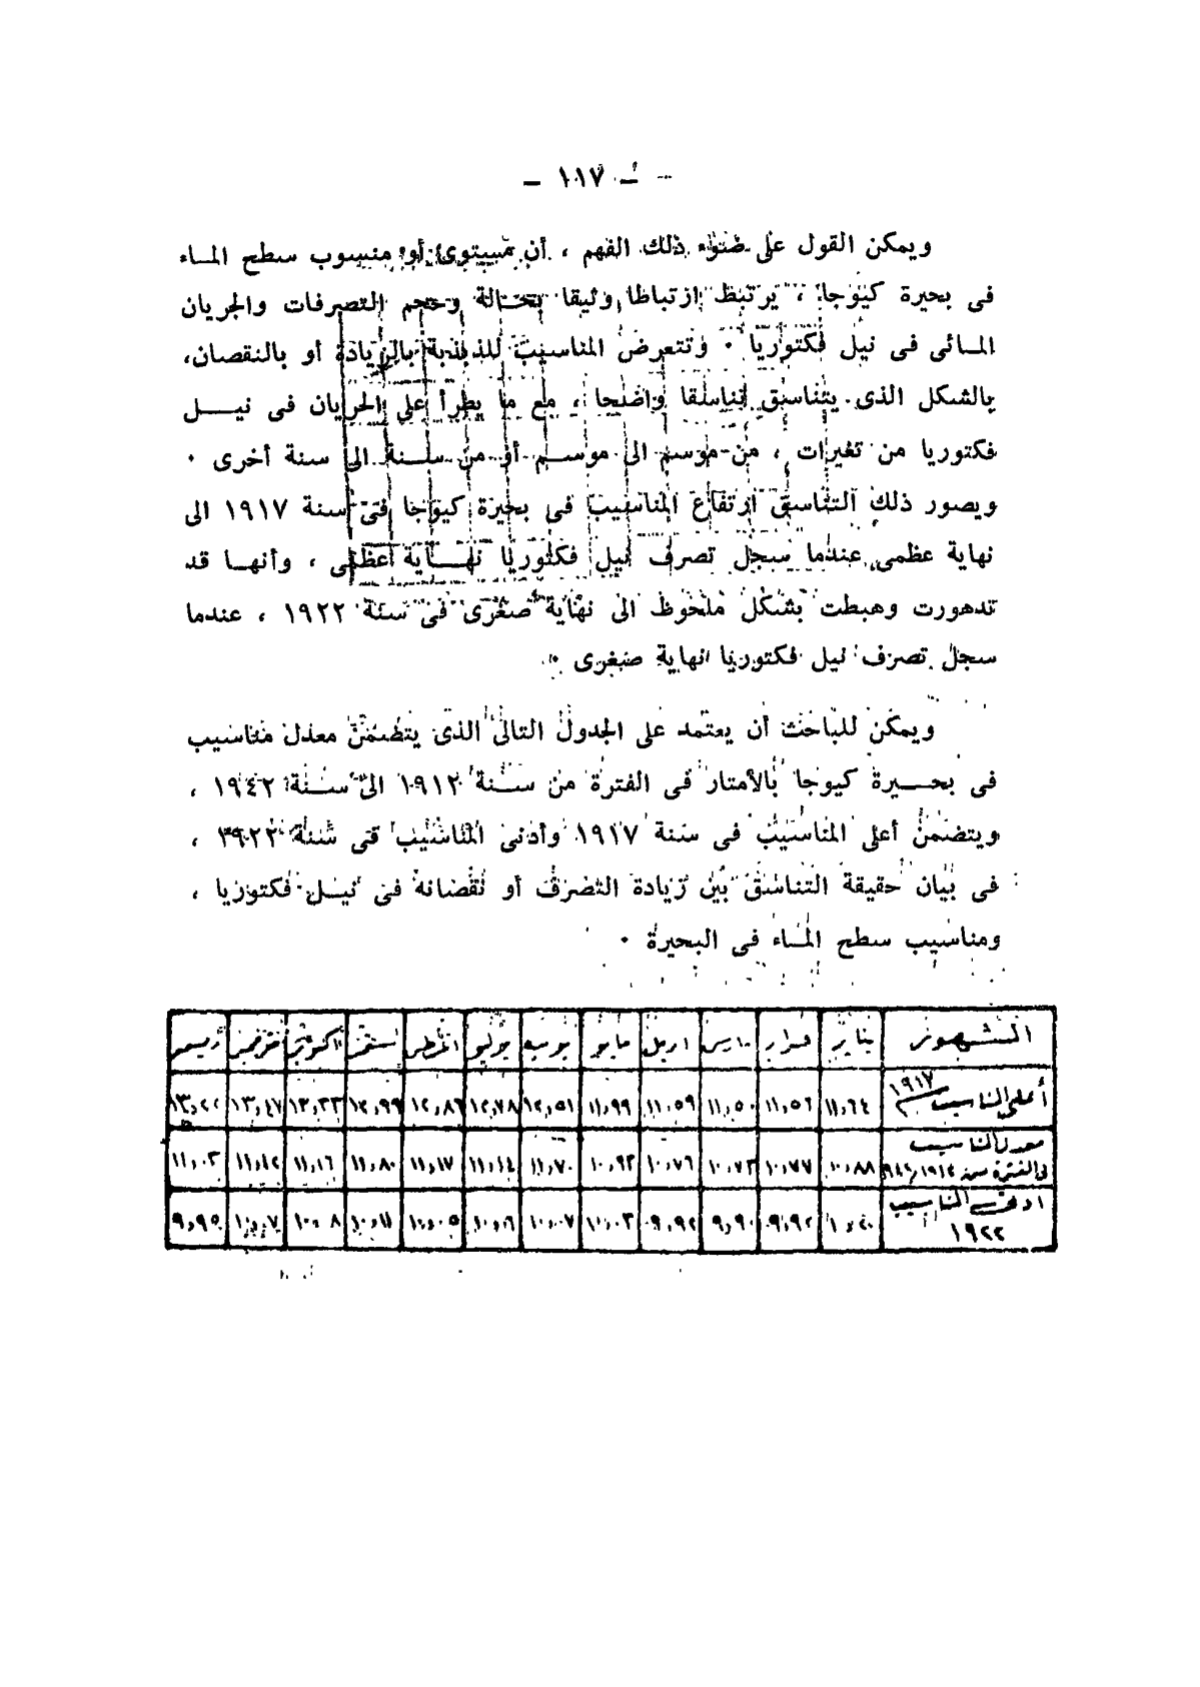 – ١١٧ –
ويمكن القول على ضوء ذلك الفهم ، أن مستوى أو منسوب سطح المـاء
فى بحيرة كيوجا ، يرتبط ارتباطا وثيقا بحـالة وحجم التصرفات والجريان
المـائى فى نيل فكتوريا ٠ وتتعرض المناسيب للذبذبة بالزيادة أو بالنقصان،
بالشكل الذى يتناسق تناسقا واضحا ، مع ما يطرأ على الجريان فى نيـــل
فكتوريا من تغيرات ، من موسم الى موسـم أو من سـنة الى سنة أخرى ٠
ويصور ذلك التناسق ارتفاع المناسيب فى بحيرة كيوجا فى سنة ١٩١٧ الى
نهاية عظمى عندما سجل تصرف نيل فكتوريا نهـاية عظمى ، وأنهـا قد
تدهورت وهبطت بشكل ملحوظ الى نهاية صغرى فى سنة ١٩٢٢ ، عندما
سجل تصرف نيل فكتوريا نهاية صغرى ٠
ويمكن للباحث أن يعتمد على الجدول التالى الذى يتضمن معدل مناسيب
فى بحـــيرة كيوجا بالأمتار فى الفترة من سـنة ١٩١٢ الى سـنة ١٩٤٢ ،
ويتضمن أعلى المناسيب فى سنة ١٩١٧ وأدنى المناسيب فى سنة ،
فى بيان حقيقة التناسق بين زيادة التصرف أو نقصانه فى نيـل فكتوريا ،
ومناسيب سطح المـاء فى البحيرة ٠
الشهور يناير فبراير مارس ابريل مايو يونيه يوليو اغسطس سبتمبر اكتوبر نوفمبر ديسمبر
أعلى المناسيب ١٩١٧ ١١,٦٤ ١١,٥٦ ١١,٥٠ ١١,٥٩ ١١,٩٩ ١٢,٥١ ١٢,٧٨ ١٢,٨٦ ١٢,٩٩ ١٣,٣٣ ١٣,٤٧ ١٣,٢٢
معدل المناسيب
فى الفترة من ١٩١٢/ ١٠,٨٨ ١٠,٧٧ ١٠,٧٣ ١٠,٧٦ ١٠,٩٢ ١١,٧٠ ١١,١٤ ١١,١٧ ١١,٨٠ ١١,١٦ ١١,١٢ ١١,٠٣
ادنى المناسيب
١٩٢٢ ٩,٩٢ ٩,٩٠ ٩,٩٢ ١٠,٠٣ ١٠,٠٧ ١٠,٠٦ ١٠,٠٥ ١٠,١١ ١٠,٠٨ ١٠,٠٧ ٩,٩٥